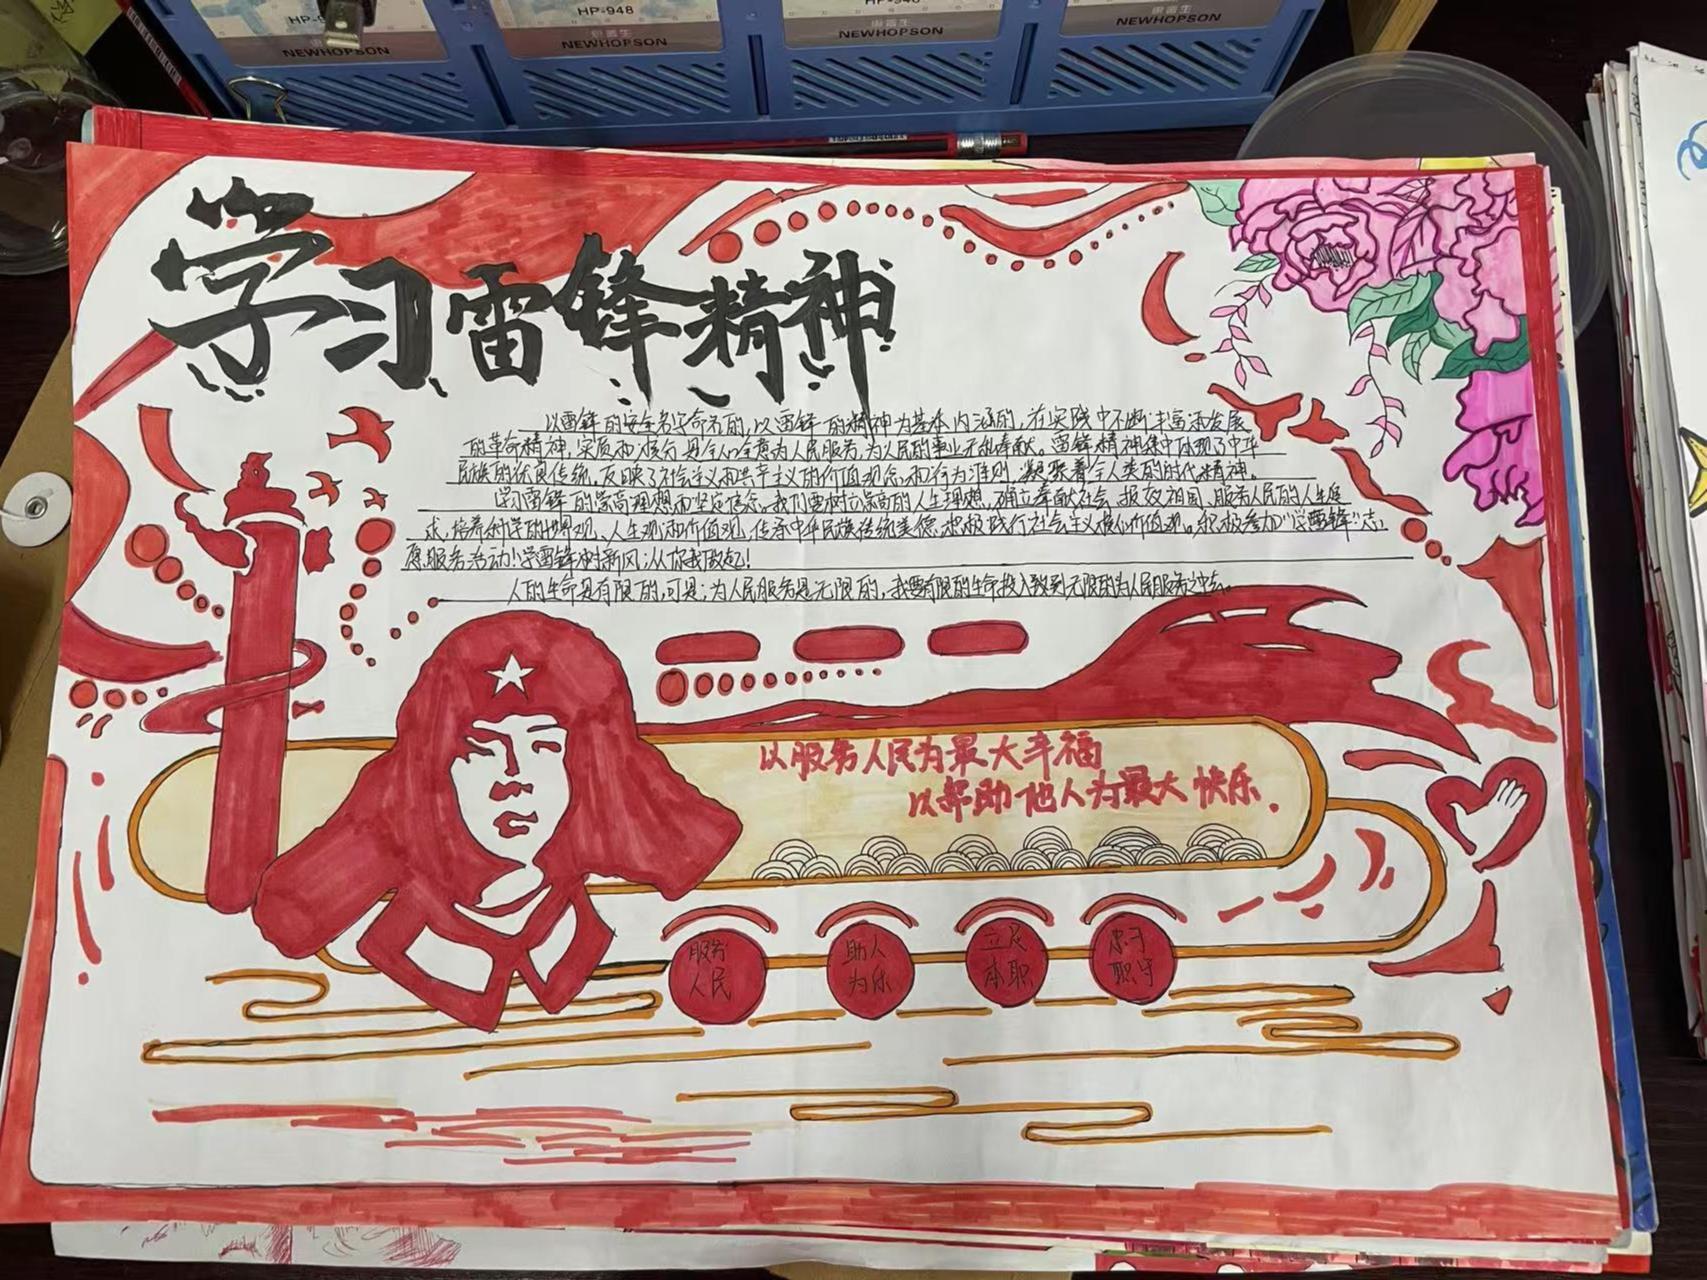 HP-948
HP-948
惠普生
NEWHOPSON
惠普生
NEWHOPSON
惠普生
NEWHOPSON
惠普生
NEWHOPSON
学习雷锋精神
以雷锋的名字命名的,以雷锋的精神为基本内涵的,在实践中不断丰富和发展
的革命精神,实质和核心是全心全意为人民服务,为人民的事业无私奉献。雷锋精神集中体现了中华
民族的优良传统,反映了社会主义和共产主义的价值观念和行为准则,凝聚着全人类的时代精神。
学习雷锋的崇高理想和坚定信念。我们要树立崇高的人生理想,确立奉献社会、报效祖国、服务人民的人生追
求,培养科学的世界观、人生观和价值观,传承中华民族传统美德,积极践行社会主义核心价值观。积极参加“学雷锋”志
愿服务活动!学雷锋树新风;从你我做起!
人的生命是有限的,可是;为人民服务是无限的,我要有限的生命投入到无限的为人民服务之中去。
以服务人民为最大幸福
以帮助他人为最大快乐.
服务
人民
助人
为乐
立足
本职
忠于
职守